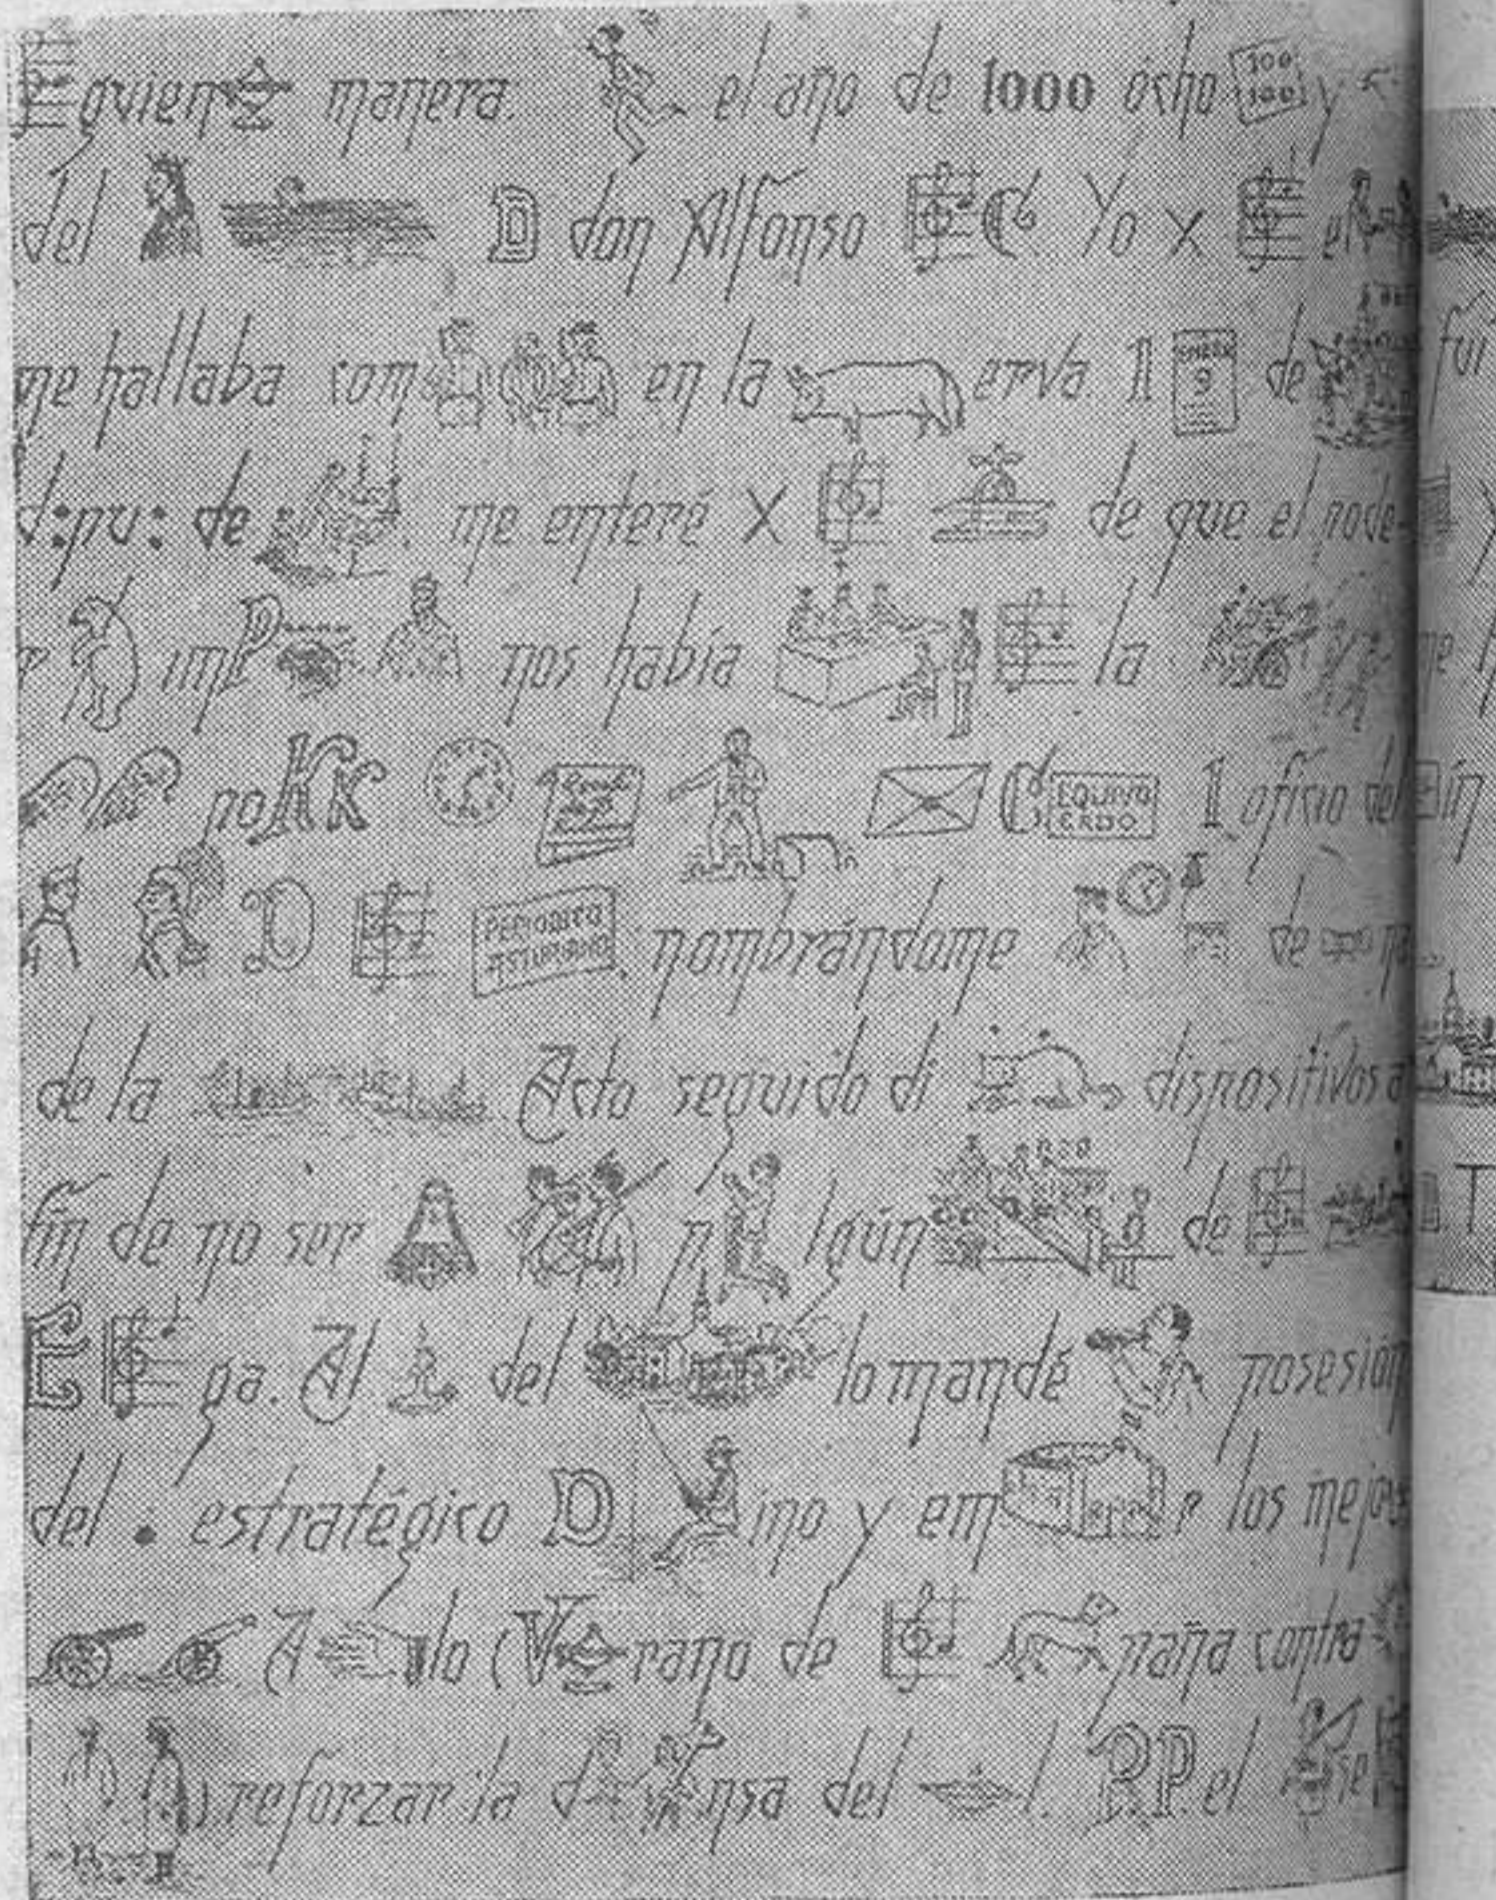 guien manera. el año de 1000 ocho 100 100 y
del D don Alfonso C. Yo X el
me hallaba com en la erva. 1 ENERO 9 de fui
d:pu: de me enteré X de que el pode-
r imp nos había la
no K K C EQUIVO CADO 1 oficio del
D PERIODICO ASTURIANO. nombrándome de
de la Acto seguido di dispositivos a
fin de no ser n lgún de
E ga. Al del lo mandé posesión
del . estratégico D ino y em r los mejores
A lo (V rano de paña contra
) reforzar la d nsa del l. P.P. el se